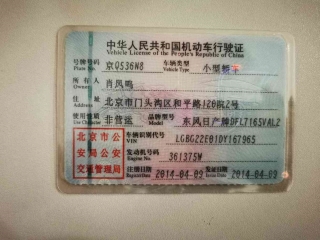 中华人民共和国机动车行驶证
Vehicle License of the People's Republic of China
号牌号码 京Q536N8 车辆类型 小型轿车
Plate No. Vehicle Type
所有人 肖凤鸣
Owner
住址 北京市门头沟区和平路120院2号
Address
使用性质 非营运 品牌型号 东风日产牌DFL7165VAL2
Use Character Model
北京市公安局公安交通管理局
车辆识别代号 LGBG22E01DY167965
VIN
发动机号码 361375W
Engine No.
注册日期 2014-04-09 发证日期 2014-04-09
Register Date Issue Date